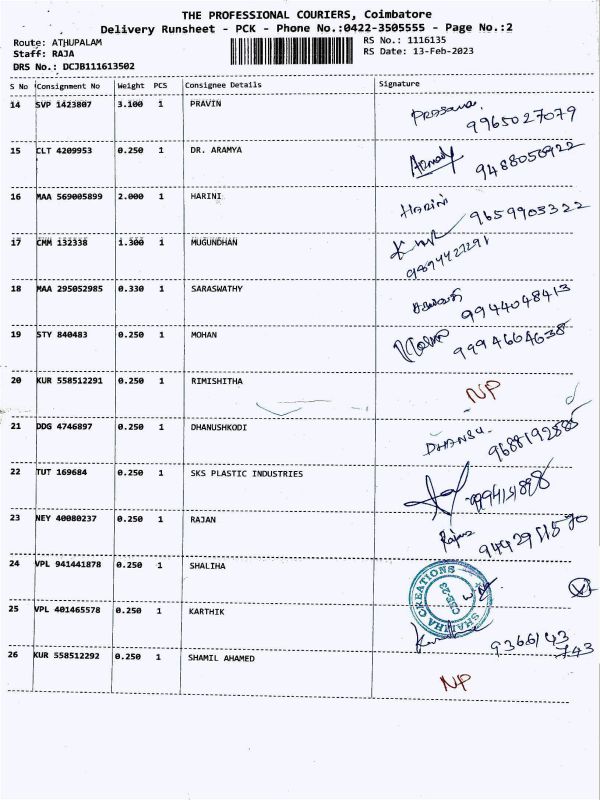 THE PROFESSIONAL COURIERS, Coimbatore
Delivery Runsheet - PCK - Phone No.:0422-3505555 - Page No.:2
Route: ATHUPALAM
RS No.: 1116135
Staff: RAJA
RS Date: 13-Feb-2023
DRS No.: DCJB111613502
S No Consignment No Weight PCS Consignee Details Signature
14 SVP 1423807 3.100 1 PRAVIN
9965027079
15 CLT 4209953 0.250 1 DR. ARAMYA
9488056922
16 MAA 569005899 2.000 1 HARINI HARINI
9659903322
17 CMM 132338 1.300 1 MUGUNDHAN
9894422291
18 MAA 295052985 0.330 1 SARASWATHY சரஸ்வதி
9944048413
19 STY 840483 0.250 1 MOHAN
9994664638
20 KUR 558512291 0.250 1 RIMISHITHA NP
21 DDG 4746897 0.250 1 DHANUSHKODI DHANSU
22 TUT 169684 0.250 1 SKS PLASTIC INDUSTRIES
23 NEY 40080237 0.250 1 RAJAN Rajan
24 VPL 941441878 0.250 1 SHALIHA
CREATIONS
CBE-23
25 VPL 401465578 0.250 1 KARTHIK
9366143
743
26 KUR 558512292 0.250 1 SHAMIL AHAMED NP